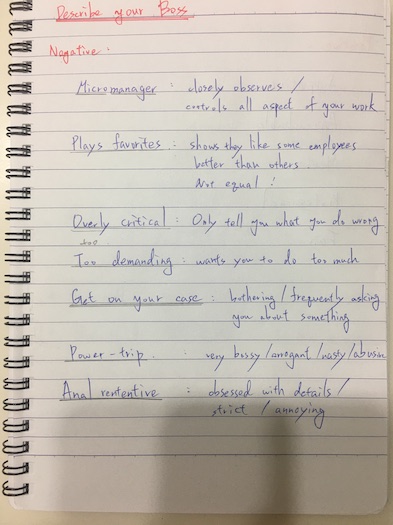 Describe your Boss
Negative :
Micromanager : closely observes /
controls all aspect of your work
Plays favorites : shows they like some employees
better than others.
Not equal !
Overly critical : Only tell you what you do wrong
too
Too demanding : wants you to do too much
Get on your case : bothering / frequently asking
you about something
Power-trip : very bossy / arrogant / nasty / abusive
Anal rentent​ive : obsessed with details /
strict / annoying